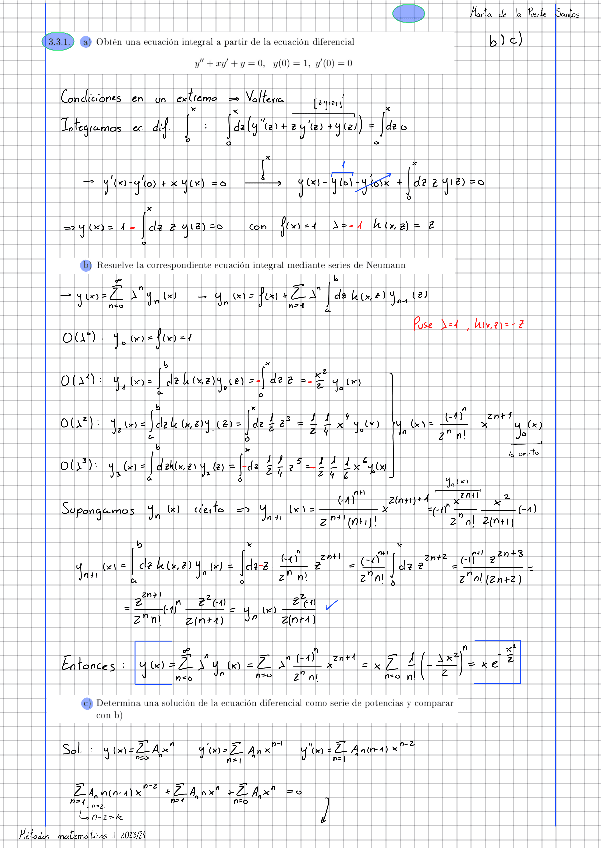 Marta de la Puente Santos
3.3.1. a) Obtén una ecuación integral a partir de la ecuación diferencial
b) c)
y'' + xy' + y = 0, y(0) = 1, y'(0) = 0
Condiciones en un extremo ⇒ Volterra
[zy(z)]'
Integramos ec dif. ∫₀ˣ : ∫₀ˣ dz (y''(z) + z y'(z) + y(z)) = ∫₀ˣ dz 0
→ y'(x) - y'(0) + x y(x) = 0 ∫₀ˣ → y(x) - y(0) - y'(0)x + ∫₀ˣ dz z y(z) = 0
1
⇒ y(x) = 1 - ∫₀ˣ dz z y(z) = 0 con f(x) = 1 λ = -1 k(x,z) = z
b) Resuelve la correspondiente ecuación integral mediante series de Neumann
→ y(x) = Σ_{n=0}^∞ λⁿ yₙ(x) → yₙ(x) = f(x) + Σ_{n=1} λⁿ ∫ₐᵇ dz k(x,z) yₙ₋₁(z)
Puse λ=1, k(x,z) = -z
O(λ⁰): y₀(x) = f(x) = 1
O(λ¹): y₁(x) = ∫ₐᵇ dz k(x,z) y₀(z) = -∫₀ˣ dz z = -x²/2 y₀(x)
O(λ²): y₂(x) = ∫ₐᵇ dz k(x,z) y₁(z) = ∫₀ˣ dz 1/2 z³ = 1/2 1/4 x⁴ y₀(x)
yₙ(x) = (-1)ⁿ/(2ⁿ n!) x²ⁿ⁺¹ y₀(x)
O(λ³): y₃(x) = ∫ₐᵇ dz k(x,z) y₂(z) = ∫₀ˣ -dz 1/2 1/4 z⁵ = -1/2 1/4 1/6 x⁶ y₀(x)
Supongamos yₙ(x) cierto ⇒ yₙ₊₁(x) = (-1)ⁿ⁺¹/(2ⁿ⁺¹(n+1)!) x²⁽ⁿ⁺¹⁾⁺¹ = (-1)ⁿ x²ⁿ⁺¹/(2ⁿ n!) x²/(2(n+1)) (-1)
yₙ(x)
yₙ₊₁(x) = ∫ₐᵇ dz k(x,z) yₙ(x) = ∫₀ˣ dz -z (-1)ⁿ/(2ⁿ n!) z²ⁿ⁺¹ = (-1)ⁿ⁺¹/(2ⁿ n!) ∫₀ˣ dz z²ⁿ⁺² = (-1)ⁿ⁺¹ z²ⁿ⁺³/(2ⁿ n! (2n+2)) =
= z²ⁿ⁺¹/(2ⁿ n!) (-1)ⁿ z²(-1)/(2(n+1)) = yₙ(x) z²(-1)/(2(n+1)) ✓
Entonces : y(x) = Σ_{n=0}^∞ λⁿ yₙ(x) = Σ_{n=0} λⁿ (-1)ⁿ/(2ⁿ n!) x²ⁿ⁺¹ = x Σ_{n=0} 1/n! (-λx²/2)ⁿ = x e^{-x²/2}
c) Determina una solución de la ecuación diferencial como serie de potencias y comparar
con b)
Sol : y(x) = Σ_{n=0} Aₙxⁿ y'(x) = Σ_{n=1} Aₙ n xⁿ⁻¹ y''(x) = Σ_{n=1} Aₙ n(n-1) xⁿ⁻²
Σ_{n=1} Aₙ n(n-1) xⁿ⁻² + Σ_{n=1} Aₙ n xⁿ + Σ_{n=0} Aₙ xⁿ = 0
n=2
↳ n-2 = k
Métodos matemáticos I 2023/24